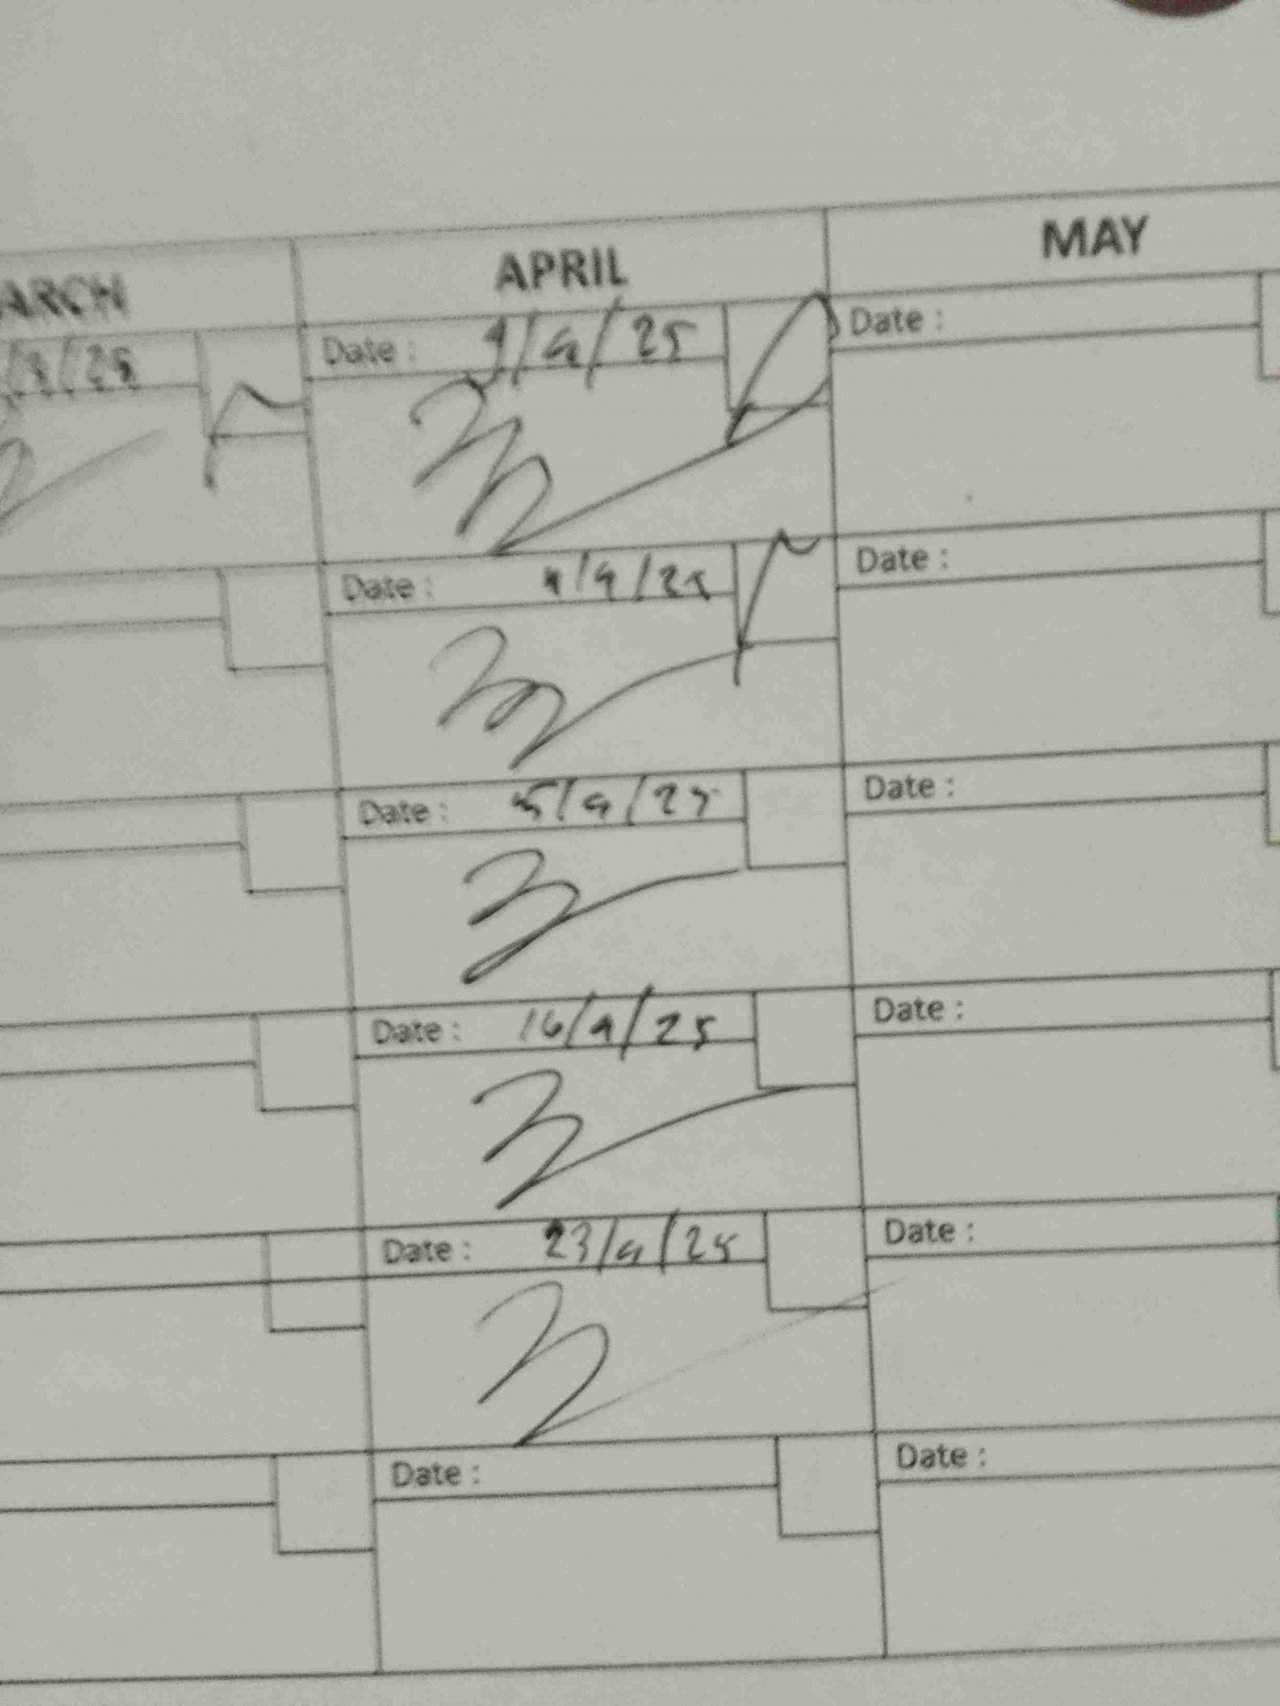 ARCH
APRIL
MAY
Date :
Date :
Date : 4/4/25
Date :
Date : 5/4/25
Date :
Date : 16/4/25
Date :
Date : 23/4/25
Date :
Date :
Date :